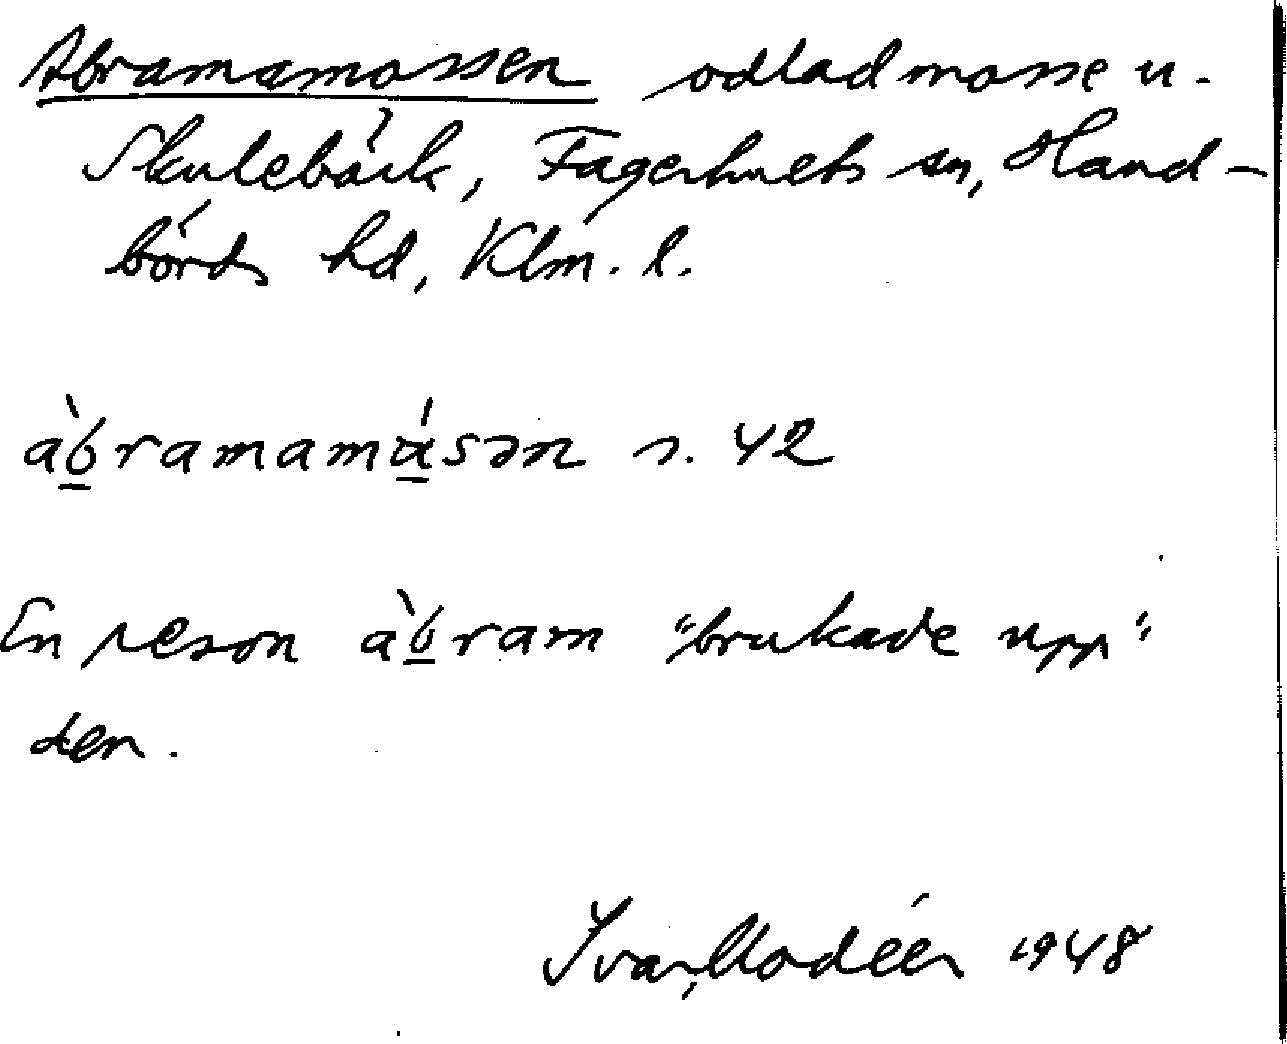 Abramamossen odlad mosse u.
Skulebäck, Fagerhults sn, Hand-
börds hd, Klm. l.
àbramamásən s. 42
En person àbram "brukade upp"
den.
Ivar Modéer 1948